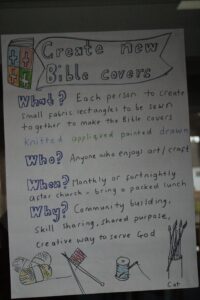 Create new
Bible covers
What? Each person to create
small fabric rectangles to be sewn
together to make the Bible covers
Knitted appliqued painted drawn
Who? Anyone who enjoys art/craft
When? Monthly or fortnightly
after church - bring a packed lunch
Why? Community building,
skill sharing, shared purpose,
creative way to serve God
Cat